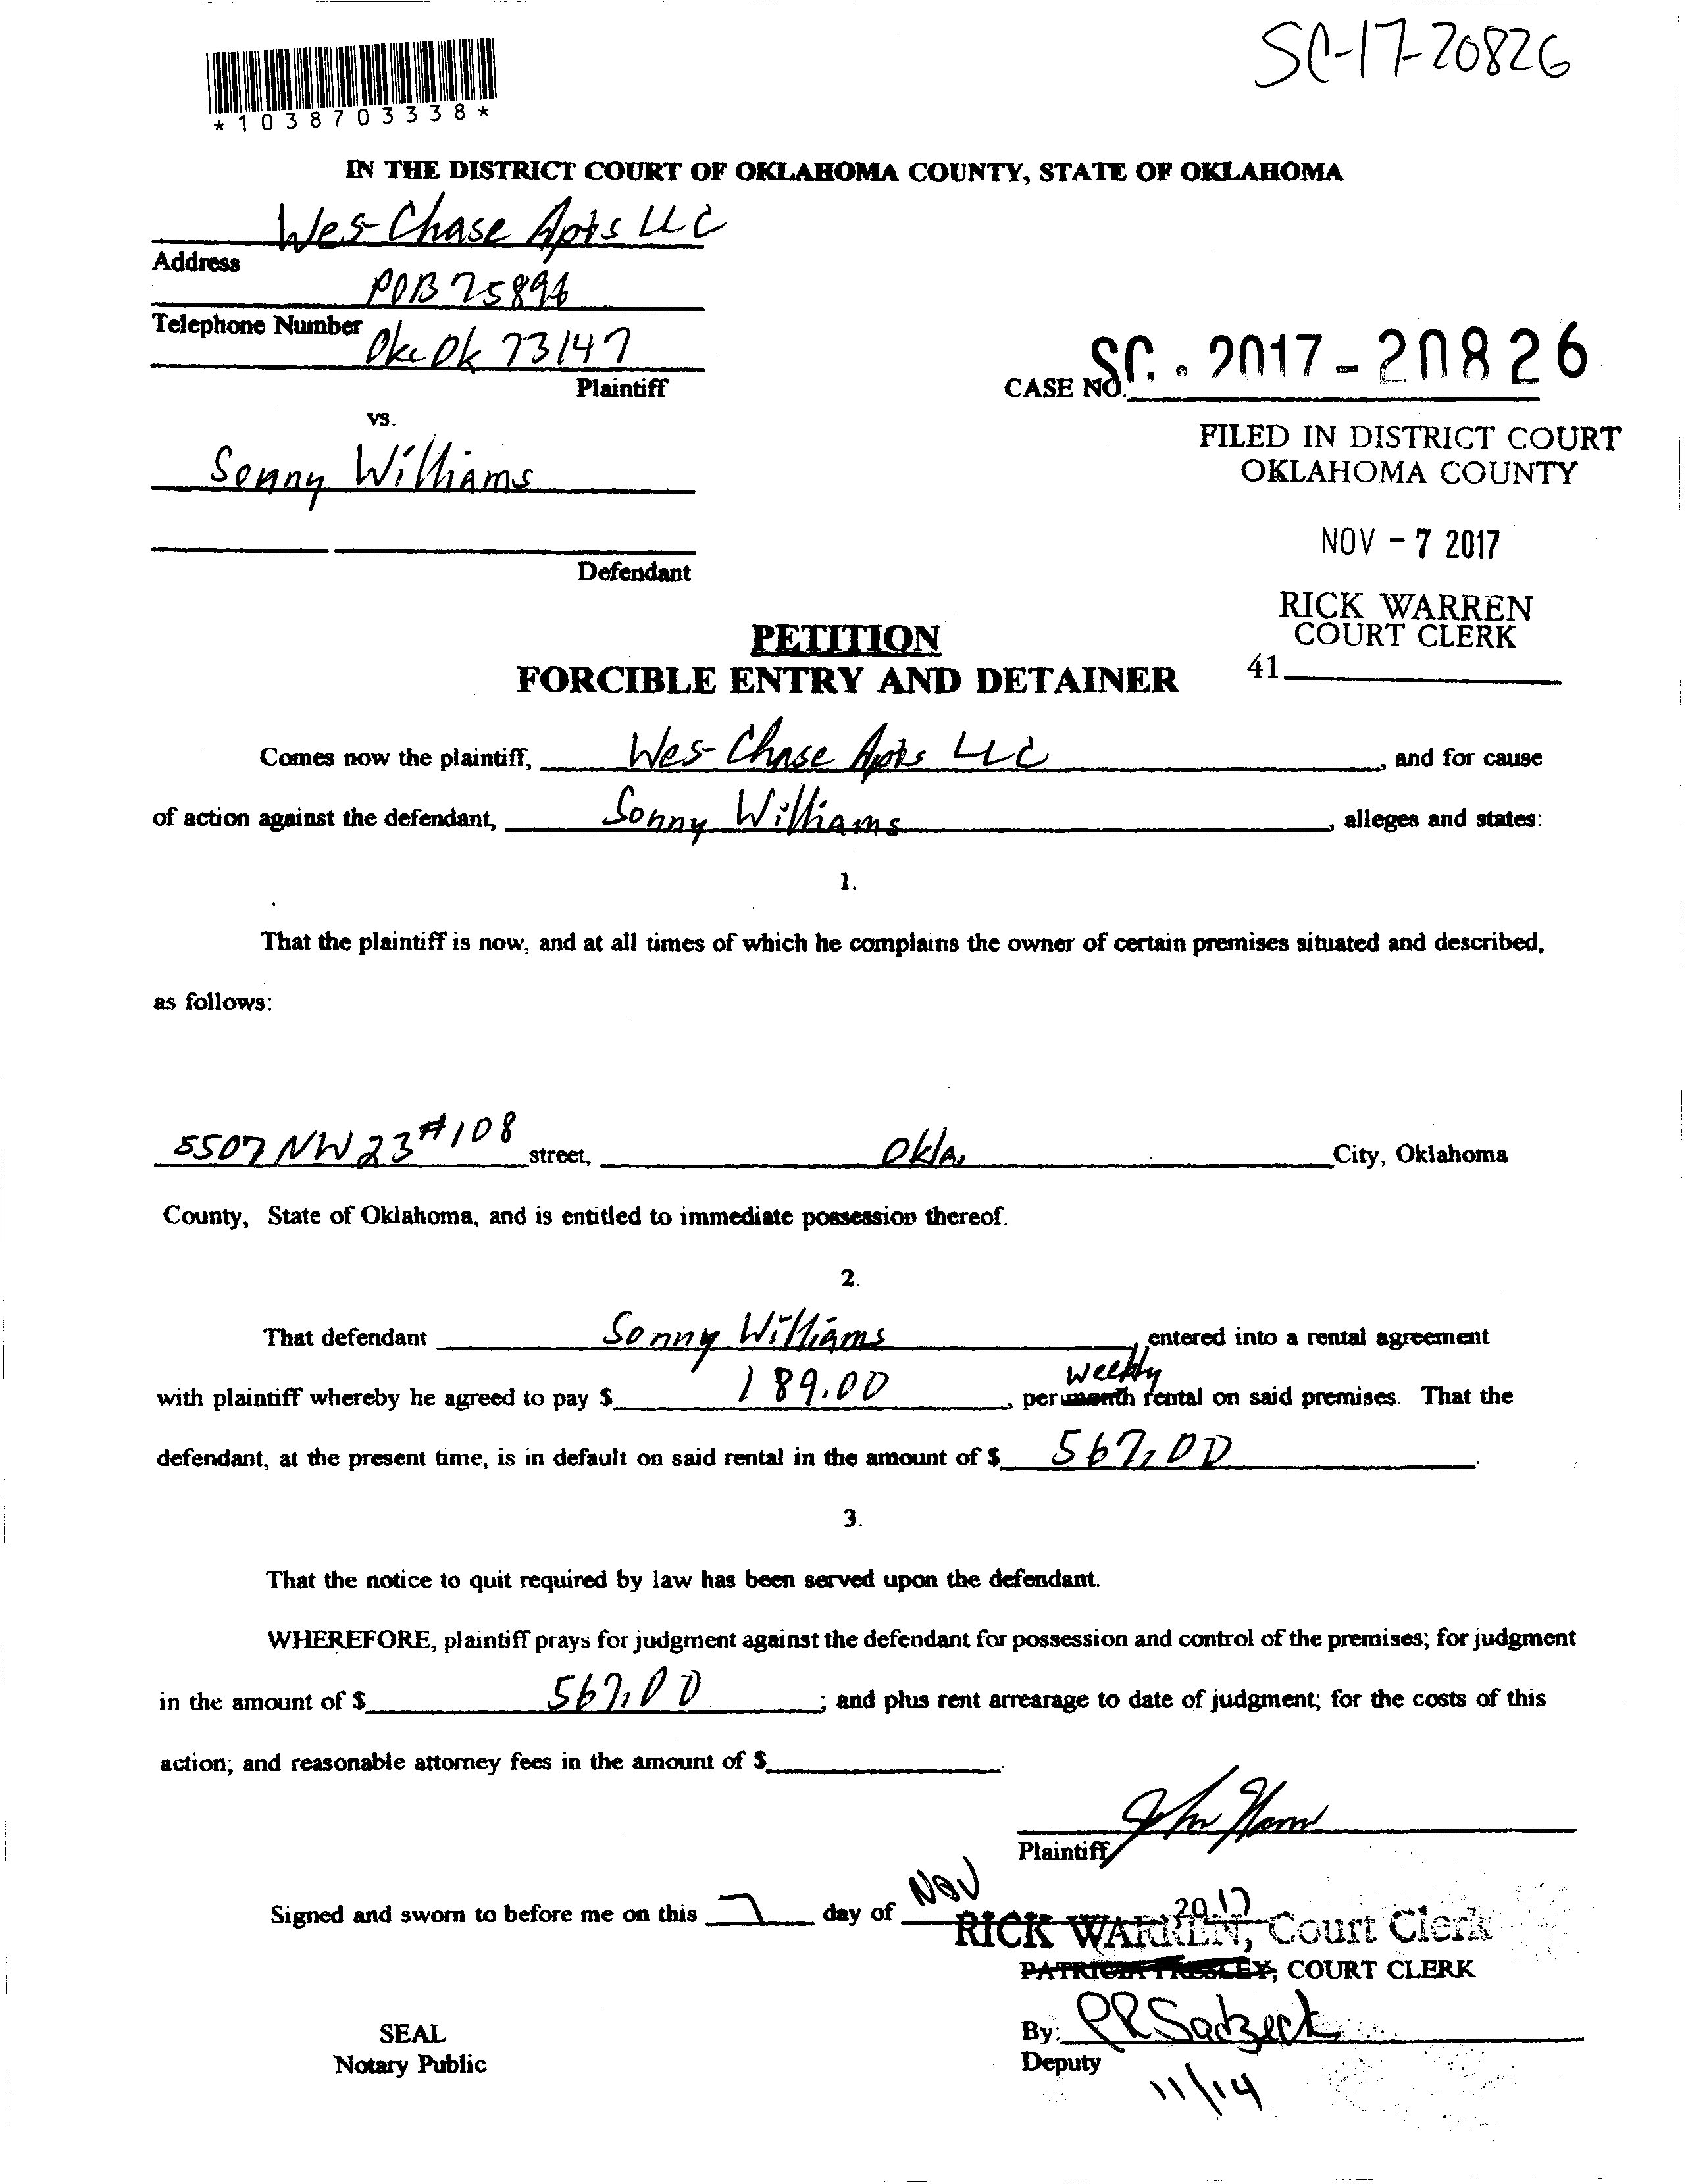 SC-17-20826
*1038703338*
IN THE DISTRICT COURT OF OKLAHOMA COUNTY, STATE OF OKLAHOMA
Wes-Chase Apts LLC
Address
POB 75894
Telephone Number
Okc Ok 73147
Plaintiff
CASE NO. SC. 2017-20826
vs.
FILED IN DISTRICT COURT
OKLAHOMA COUNTY
Sonny Williams
NOV - 7 2017
Defendant
RICK WARREN
COURT CLERK
41
PETITION
FORCIBLE ENTRY AND DETAINER
Comes now the plaintiff, Wes-Chase Apts LLC, and for cause
of action against the defendant, Sonny Williams, alleges and states:
1.
That the plaintiff is now, and at all times of which he complains the owner of certain premises situated and described,
as follows:
5507 NW 23 #108 street, Okla. City, Oklahoma
County, State of Oklahoma, and is entitled to immediate possession thereof.
2.
That defendant Sonny Williams, entered into a rental agreement
with plaintiff whereby he agreed to pay $ 189.00, per month weekly rental on said premises. That the
defendant, at the present time, is in default on said rental in the amount of $ 567.00.
3.
That the notice to quit required by law has been served upon the defendant.
WHEREFORE, plaintiff prays for judgment against the defendant for possession and control of the premises; for judgment
in the amount of $ 567.00; and plus rent arrearage to date of judgment; for the costs of this
action; and reasonable attorney fees in the amount of $
Plaintiff
Signed and sworn to before me on this 7 day of Nov 2017
RICK WARREN, Court Clerk
PATRICIA PRESLEY, COURT CLERK
SEAL
By:
Notary Public
Deputy
11/14